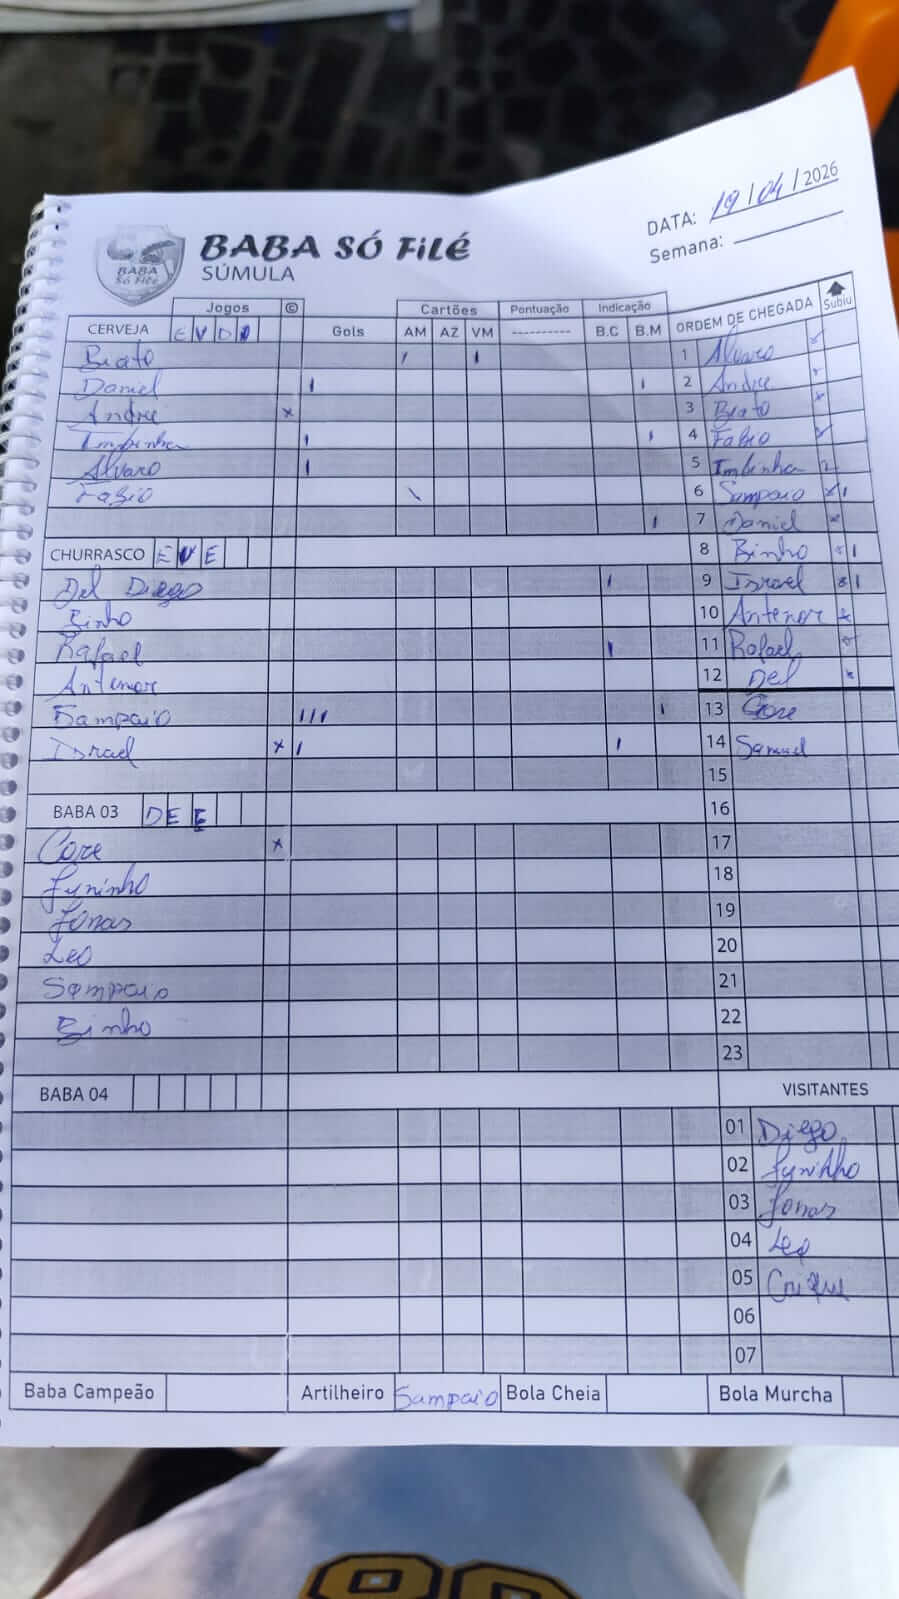 DATA: 19/04/2026
Semana:
BABA SÓ FILÉ
BABA SÓ FILÉ
SÚMULA
Jogos © Cartões Pontuação Indicação
CERVEJA E V D Gols AM AZ VM ---------- B.C B.M ORDEM DE CHEGADA Subiu
Biato
Daniel
Andre x
Imbinha
Alvaro
Fabio
CHURRASCO E V E
Del Diego
Binho
Rafael
Antenor
Sampaio III
Israel x I
BABA 03 D E E
Core x
Juninho
Jonas
Leo
Sampaio
Binho
BABA 04
1 Alvaro
2 Andre
3 Biato
4 Fabio
5 Imbinha
6 Sampaio
7 Daniel
8 Binho
9 Israel
10 Antenor
11 Rafael
12 Del
13 Core
14 Samuel
15
16
17
18
19
20
21
22
23
VISITANTES
01 Diego
02 Juninho
03 Jonas
04 Leo
05
06
07
Baba Campeão Artilheiro Sampaio Bola Cheia Bola Murcha